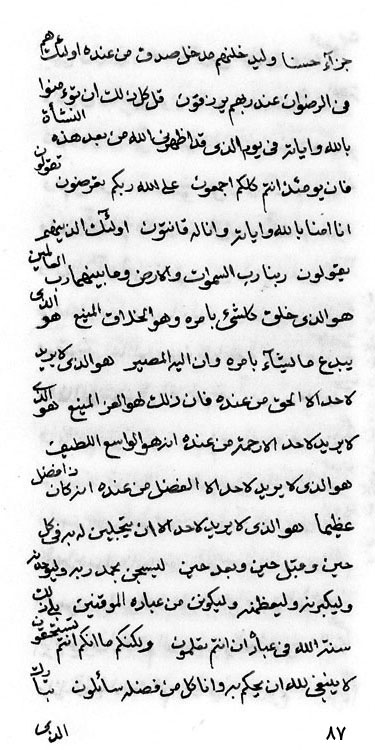 جزآء حسنا وليدخلنهم مدخل صدق من عنده اولئك هم
فى الرضوان عند ربهم يرزقون قل كل ذلك ان تؤمنوا
بالله واياته فى يوم الذى قد اظهرنى الله من بعد هذه النشأة
فان يومئذ انتم كلكم اجمعون على الله ربكم تعرضون تقولون
انا امنا بالله واياته وانا له قانتون اولئك الذينهم
يقولون ربنا رب السموات والارض وما بينهما رب العالمين
هو الذى خلق كلشىء بامره وهو الخلاق المنيع هو الذى
يبدع ما يشآء بامره وان اليه المصير هو الذى لا يريد
لاحد الا الحق من عنده فان ذلك لهو العز المنيع هو الذى
لا يريد لاحد الا رحمة من عنده انه هو الواسع اللطيف
هو الذى لا يريد لاحد الا الفضل من عنده انه كان ذا فضل
عظيما هو الذى لا يريد لاحد الا ان يتجلين له به فى كل
حين وقبل حين وبعد حين ليسبحن بحمد ربه
وليكبرنه وليعظمنه وليكونن من عباده الموقنين
سنة الله فى عباده ان انتم تعلمون ولكنكم ما انكم انتم تستحقون
لا ينبغى لله ان يحكم به وانا كل من فضله سائلون
٨٧ الذى